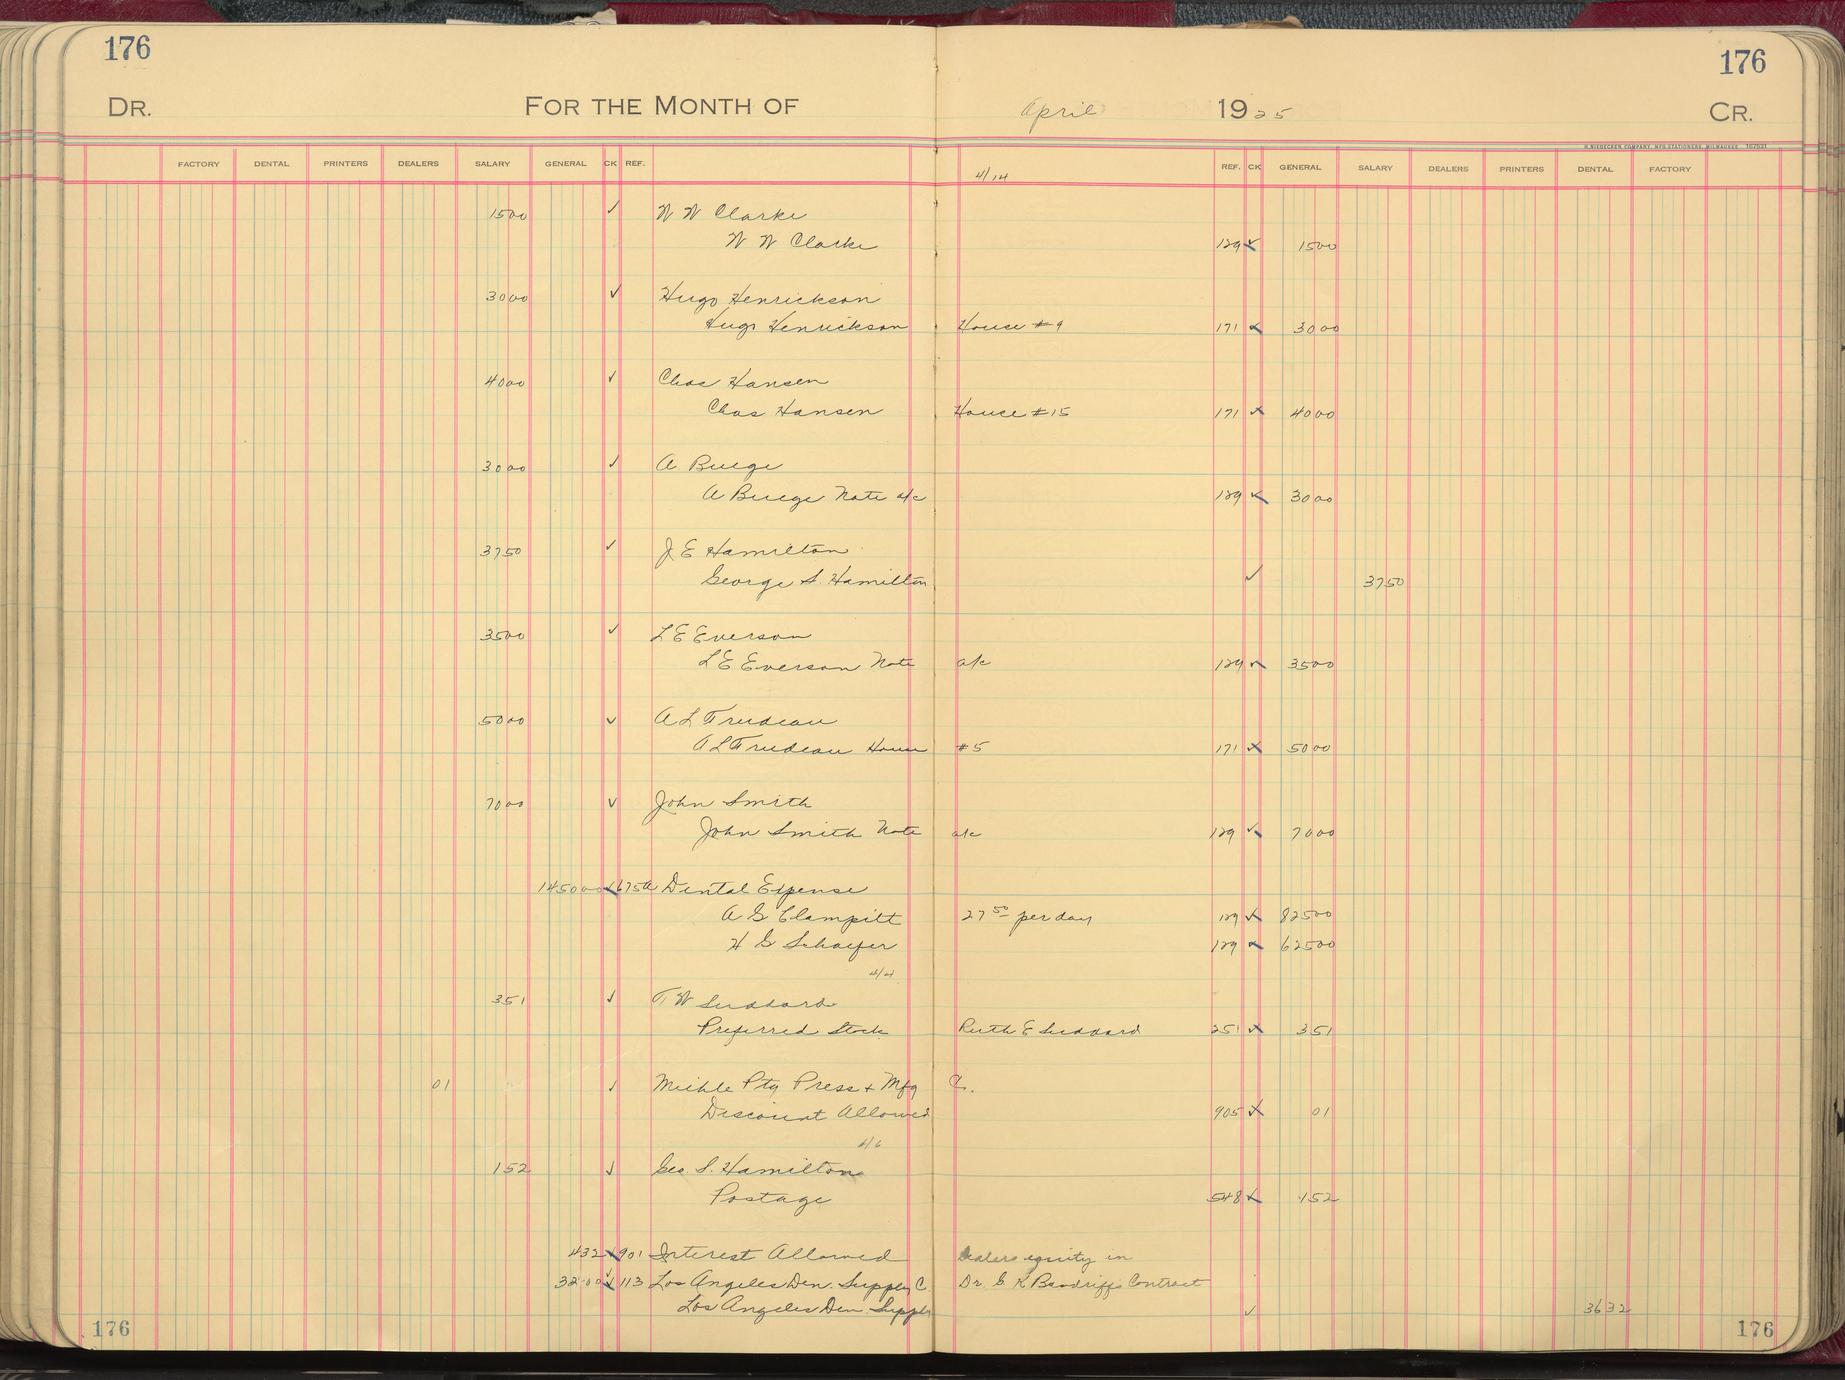 176 176
DR. FOR THE MONTH OF April 1925 CR.
H. NIEDECKEN COMPANY, MFG. STATIONERS, MILWAUKEE 167531
FACTORY DENTAL PRINTERS DEALERS SALARY GENERAL CK REF. 4/14 REF. CK GENERAL SALARY DEALERS PRINTERS DENTAL FACTORY
1500 ✓ W W Clarke
W W Clarke 129 ✓ 1500
3000 ✓ Hugo Henrickson
Hugo Henrickson House #9 171 ✓ 3000
4000 ✓ Chas Hansen
Chas Hansen House #15 171 ✓ 4000
3000 ✓ A Buege
A Buege Note a/c 129 ✓ 3000
3750 ✓ J E Hamilton
George S. Hamilton ✓ 3750
3500 ✓ L E Everson
L E Everson Note a/c 129 ✓ 3500
5000 ✓ A L Trudeau
A L Trudeau House #5 171 ✓ 5000
7000 ✓ John Smith
John Smith Note a/c 129 ✓ 7000
145000 ✓ 675A Dental Expense
A G Clampitt 27 50 per day 129 ✓ 82500
H G Schaefer 129 ✓ 62500
4/4
351 ✓ T W Suddard
Preferred Stock Ruth E Suddard 251 ✓ 351
01 ✓ Miehle Ptg Press + Mfg C.
Discount Allowed 905 ✓ 01
4/6
152 ✓ Geo. S. Hamilton
Postage 548 ✓ 152
432 ✓ 901 Interest Allowed Dealers equity in
3200 ✓ 113 Los Angeles Den. Supply C. Dr. G. K Contract
Los Angeles Den. Supply ✓ 3632
176 176